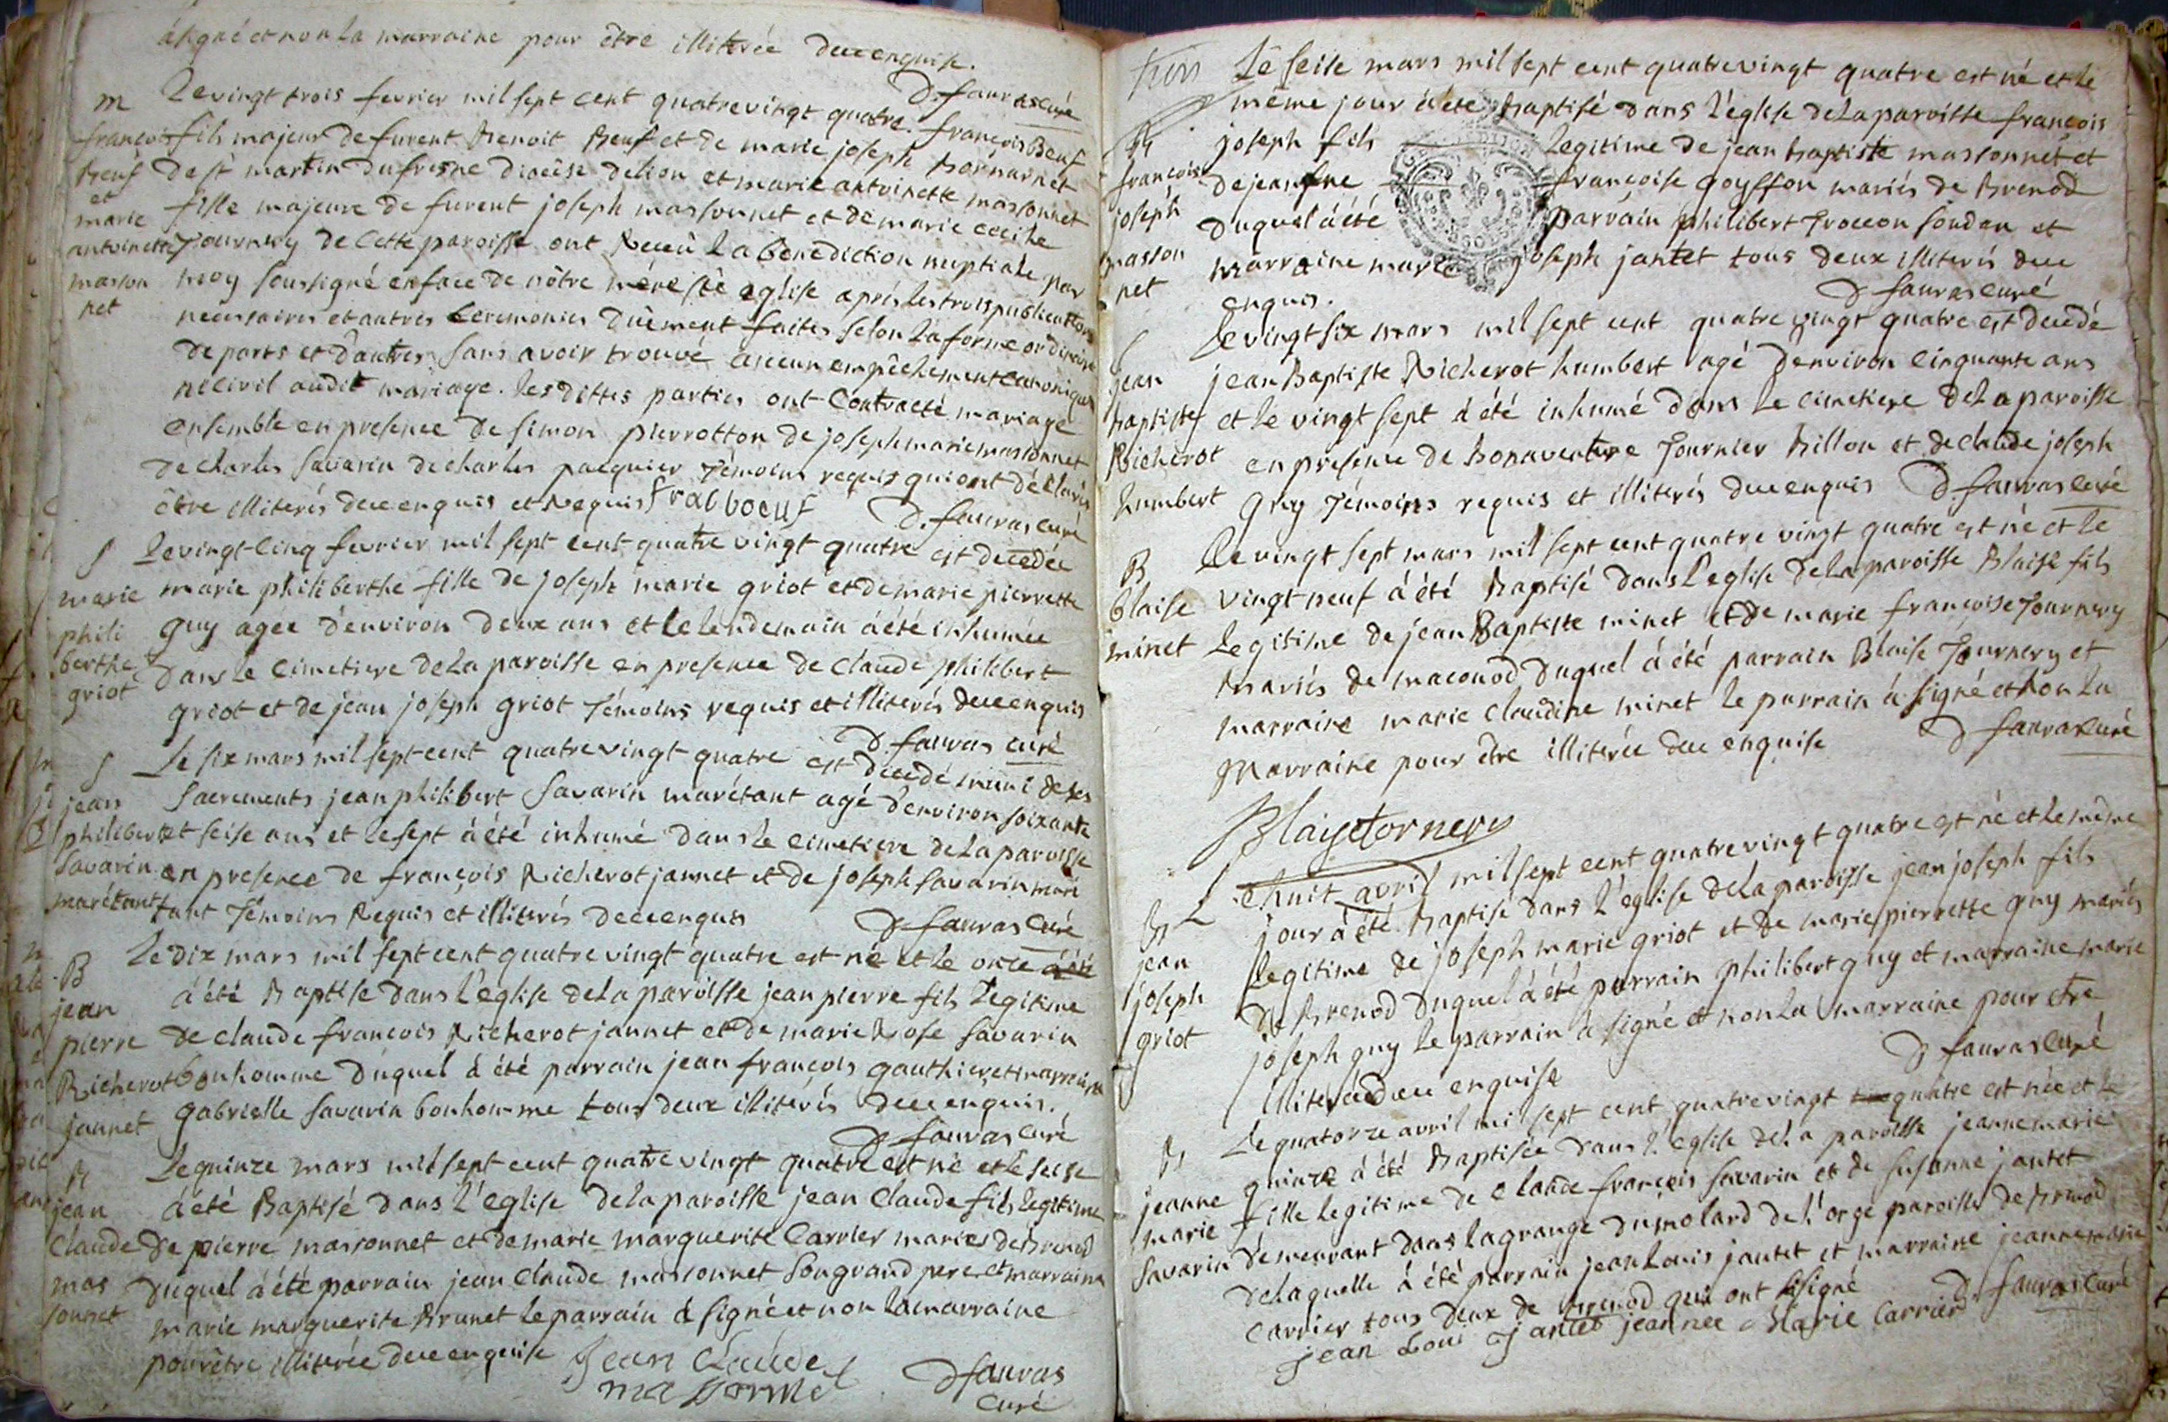 signé et non la marraine pour être illiterée deue enquise.
D. fauras curé
m
françois
beuf
et
marie
antoinette
masson
net
Le vingt trois fevrier mil sept cent quatrevingt quatre françois Beuf
fils majeur de furent Benoit Beuf et de marie joseph Bornarnet
de st martin dufresne diocèse de lion et marie antoinette massonnet
fille majeure de furent joseph massonnet et de marie cecile
Tournery de cette paroisse ont Receu la benediction nuptiale par
moy soussigné en face de nôtre mére ste eglise aprés les trois publications
necessaires et autres Ceremonies duêment faites selon la forme ordinaire
de parts et d'autres sans avoir trouvé aucun empêchement canonique
ni civil audit mariage. lesdittes parties ont Contracté mariage
ensemble en presence de simon pierrotton de joseph marie massonnet
de charles savarin de charles pacquier Témoins requis qui ont déclarés
être illiterés deue enquis et Requis frabboeuf D. fauras curé
S
marie
phili
berthe
griot
Le vingt-Cinq fevrier mil sept cent quatre vingt quatre est decedée
marie philiberthe fille de joseph marie griot et de marie pierrette
guy agée d'environ deux ans et le lendemain à été inhumée
dans le Cimetiere de la paroisse en presence de claude philibert
griot et de jean joseph griot Témoins requis et illiterés deue enquis
D. fauras curé
S
jean
philibert
savarin
marétant
Le six mars mil sept-cent quatre vingt quatre est decedé muni de ses
sacrements jean philibert savarin marétant agé d'environ soixante
et seise ans et le sept à été inhumé dans le Cimetiere de la paroisse
en presence de françois Richerot jannet et de joseph savarin maré
tant Témoins Requis et illiterés deue enquis D. fauras curé
B
jean
pierre
Richerot
jannet
Le dix mars mil sept cent quatre vingt quatre est né et le onze à été
à été Baptise dans l'eglise de la paroisse jean pierre fils legitime
de claude francois Richerot jannet et de marie Rose savarin
bonhomme duquel à été parrain jean françois gauthier et marraine
gabrielle savarin bonhomme tous deux illiterés deue enquis.
D. fauras curé
B
jean
Claude
mas
sonnet
Le quinze mars mil sept cent quatre vingt quatre est né et le seise
à été Baptisé dans l'eglise de la paroisse jean Claude fils legitime
de pierre massonnet et de marie marguerite Carrier mariés de Brenod
duquel à été parrain jean Claude massonnet son grand pere et marraine
marie marguerite Brunet le parrain à signé et non la marraine
pour être illiterée deue enquise Jean Claude
massonnet D fauras
curé
B
francois
joseph
masson
net
Le seise mars mil sept cent quatre vingt quatre est né et le
même jour à été Baptisé dans l'église de la paroisse françois
joseph fils legitime de jean baptiste massonnet et
de jeanne françoise goyffon mariés de Brenod
duquel à été parrain philibert Troccon soudan et
marraine marie joseph jantet tous deux illiterés deue
enquis. D fauras curé
S
jean
baptiste
Richerot
humbert
Le vingt six mars mil sept cent quatre vingt quatre est decedé
jean Baptiste Richerot humbert agé d'environ Cinquante ans
et le vingt sept à été inhumé dans le Cimetiere de la paroisse
en presence de Bonaventure Tournier Billon et de claude joseph
guy Témoins requis et illiterés deue enquis D. fauras curé
B
blaise
minet
Le vingt sept mars mil sept cent quatre vingt quatre est né et le
vingt neuf à été Baptisé dans l'eglise de la paroisse Blaise fils
legitime de jean Baptiste minet et de marie françoise Tournery
mariés de maconod duquel à été parrain Blaise Tournery et
marraine marie claudine minet le parrain à signé et non la
marraine pour être illiterée deue enquise D fauras curé
Blaise tornery
B
jean
joseph
griot
Le huit avril mil sept cent quatre vingt quatre est né et le même
jour à été Baptisé dans l'église de la paroisse jean joseph fils
legitime de joseph marie griot et de marie pierrette guy mariés
de Brenod duquel à été parrain philibert guy et marraine marie
joseph guy le parrain à signé et non la marraine pour etre
illiterée deue enquise D fauras curé
B
jeanne
marie
savarin
Le quatorze avril mil sept cent quatre vingt quatre est née et le
quinze à été Baptisée dans l'eglise de la paroisse jeanne marie
fille legitime de claude françois savarin et de susanne jantet
demeurant dans la grange du molard de l'orge paroisse de Brenod
de laquelle à été parrain jean Louis jantet et marraine jeanne marie
Carrier tous deux de Brenod qui ont signé D. fauras curé
jean Loui Jantet jeannee Marie Carrier